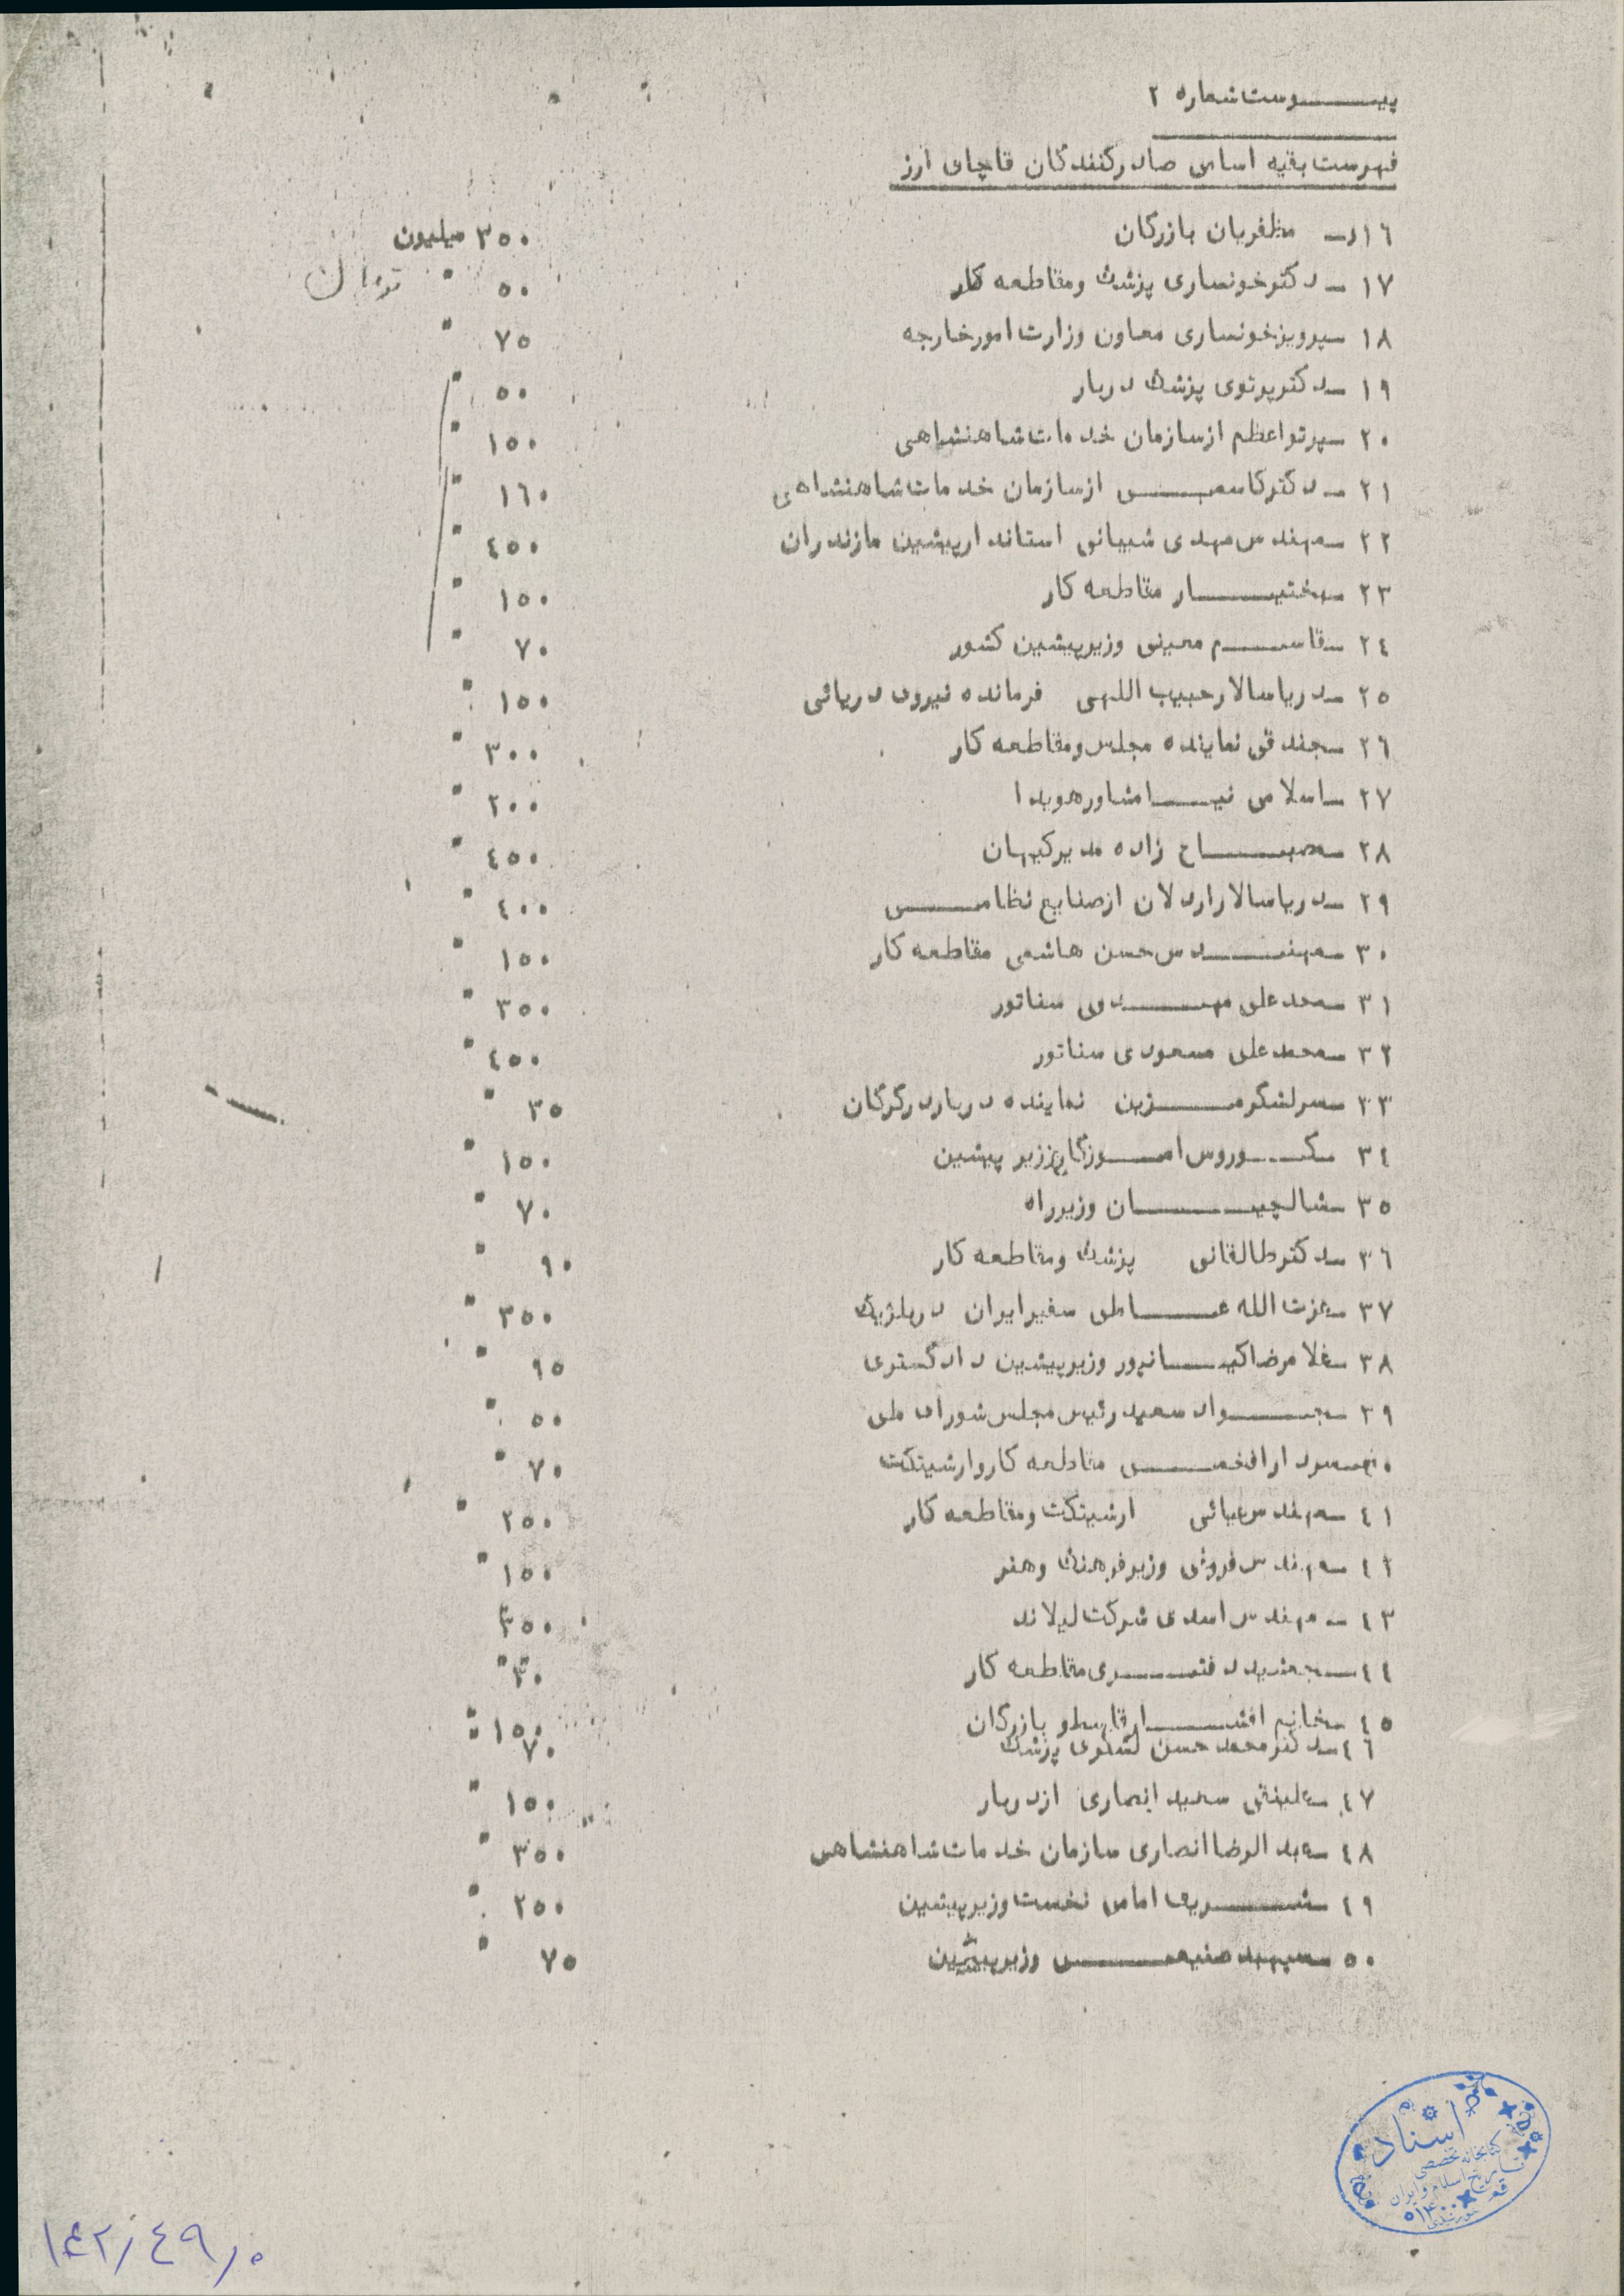 پیوست شماره ۲
فهرست بقیه اسامی صادرکنندگان قاچاق ارز
۱۶ـ مظفریان بازرگان ۳۵۰ میلیون
تومان
۱۷ـ دکتر خونساری پزشک و مقاطعه کار ۵۰ "
۱۸ـ پرویز خونساری معاون وزارت امور خارجه ۷۵ "
۱۹ـ دکتر پرتوی پزشک دربار ۵۰ "
۲۰ـ پرتو اعظم از سازمان خدمات شاهنشاهی ۱۵۰ "
۲۱ـ دکتر کاسمی از سازمان خدمات شاهنشاهی ۱۶۰ "
۲۲ـ مهندس مهدی شیبانی استاندار پیشین مازندران ۴۵۰ "
۲۳ـ بختیار مقاطعه کار ۱۵۰ "
۲۴ـ قاسم معینی وزیر پیشین کشور ۷۰ "
۲۵ـ دریاسالار حبیب اللهی فرمانده نیروی دریائی ۱۵۰ "
۲۶ـ جندقی نماینده مجلس و مقاطعه کار ۳۰۰ "
۲۷ـ اسلامی نیا مشاور هویدا ۲۰۰ "
۲۸ـ مصباح زاده مدیر کیهان ۴۵۰ "
۲۹ـ دریاسالار اردلان از صنایع نظامی ۴۰۰ "
۳۰ـ مهندس حسن هاشمی مقاطعه کار ۱۵۰ "
۳۱ـ محمد علی مهدوی سناتور ۳۵۰ "
۳۲ـ محمد علی مسعودی سناتور ۴۵۰ "
۳۳ـ سرلشگر مزین نماینده دربار در گرگان ۳۵ "
۳۴ـ کوروس آموزگار وزیر پیشین ۱۵۰ "
۳۵ـ شالچیان وزیر راه ۷۰ "
۳۶ـ دکتر طالقانی پزشک و مقاطعه کار ۹۰ "
۳۷ـ عزت الله عاملی سفیر ایران در بلژیک ۳۵۰ "
۳۸ـ غلامرضا کیانپور وزیر پیشین دادگستری ۹۵ "
۳۹ـ جواد سعید رئیس مجلس شورای ملی ۵۰ "
۴۰ـ سردار افخمی مقاطعه کار و ارشیتکت ۷۰ "
۴۱ـ مهندس ارشیتکت و مقاطعه کار ۲۵۰ "
۴۲ـ مهندس فروغی وزیر فرهنگ و هنر ۱۵۰ "
۴۳ـ مهندس اسدی شرکت لیلاند ۳۵۰ "
۴۴ـ جمشید دفتری مقاطعه کار ۳۰ "
۴۵ـ خانم افشار قاسملو بازرگان ۱۵۰ "
۴۶ـ دکتر محمد حسن لشکری پزشک ۷۰ "
۴۷ـ علینقی سعید انصاری از دربار ۱۵۰ "
۴۸ـ عبدالرضا انصاری سازمان خدمات شاهنشاهی ۳۵۰ "
۴۹ـ شریف امامی نخست وزیر پیشین ۲۵۰ "
۵۰ـ سپهبد صنیعی وزیر پیشین ۷۵ "
اسناد
کتابخانه تخصصی
تاریخ اسلام و ایران
قم
۱۴۲/۴۹/۰